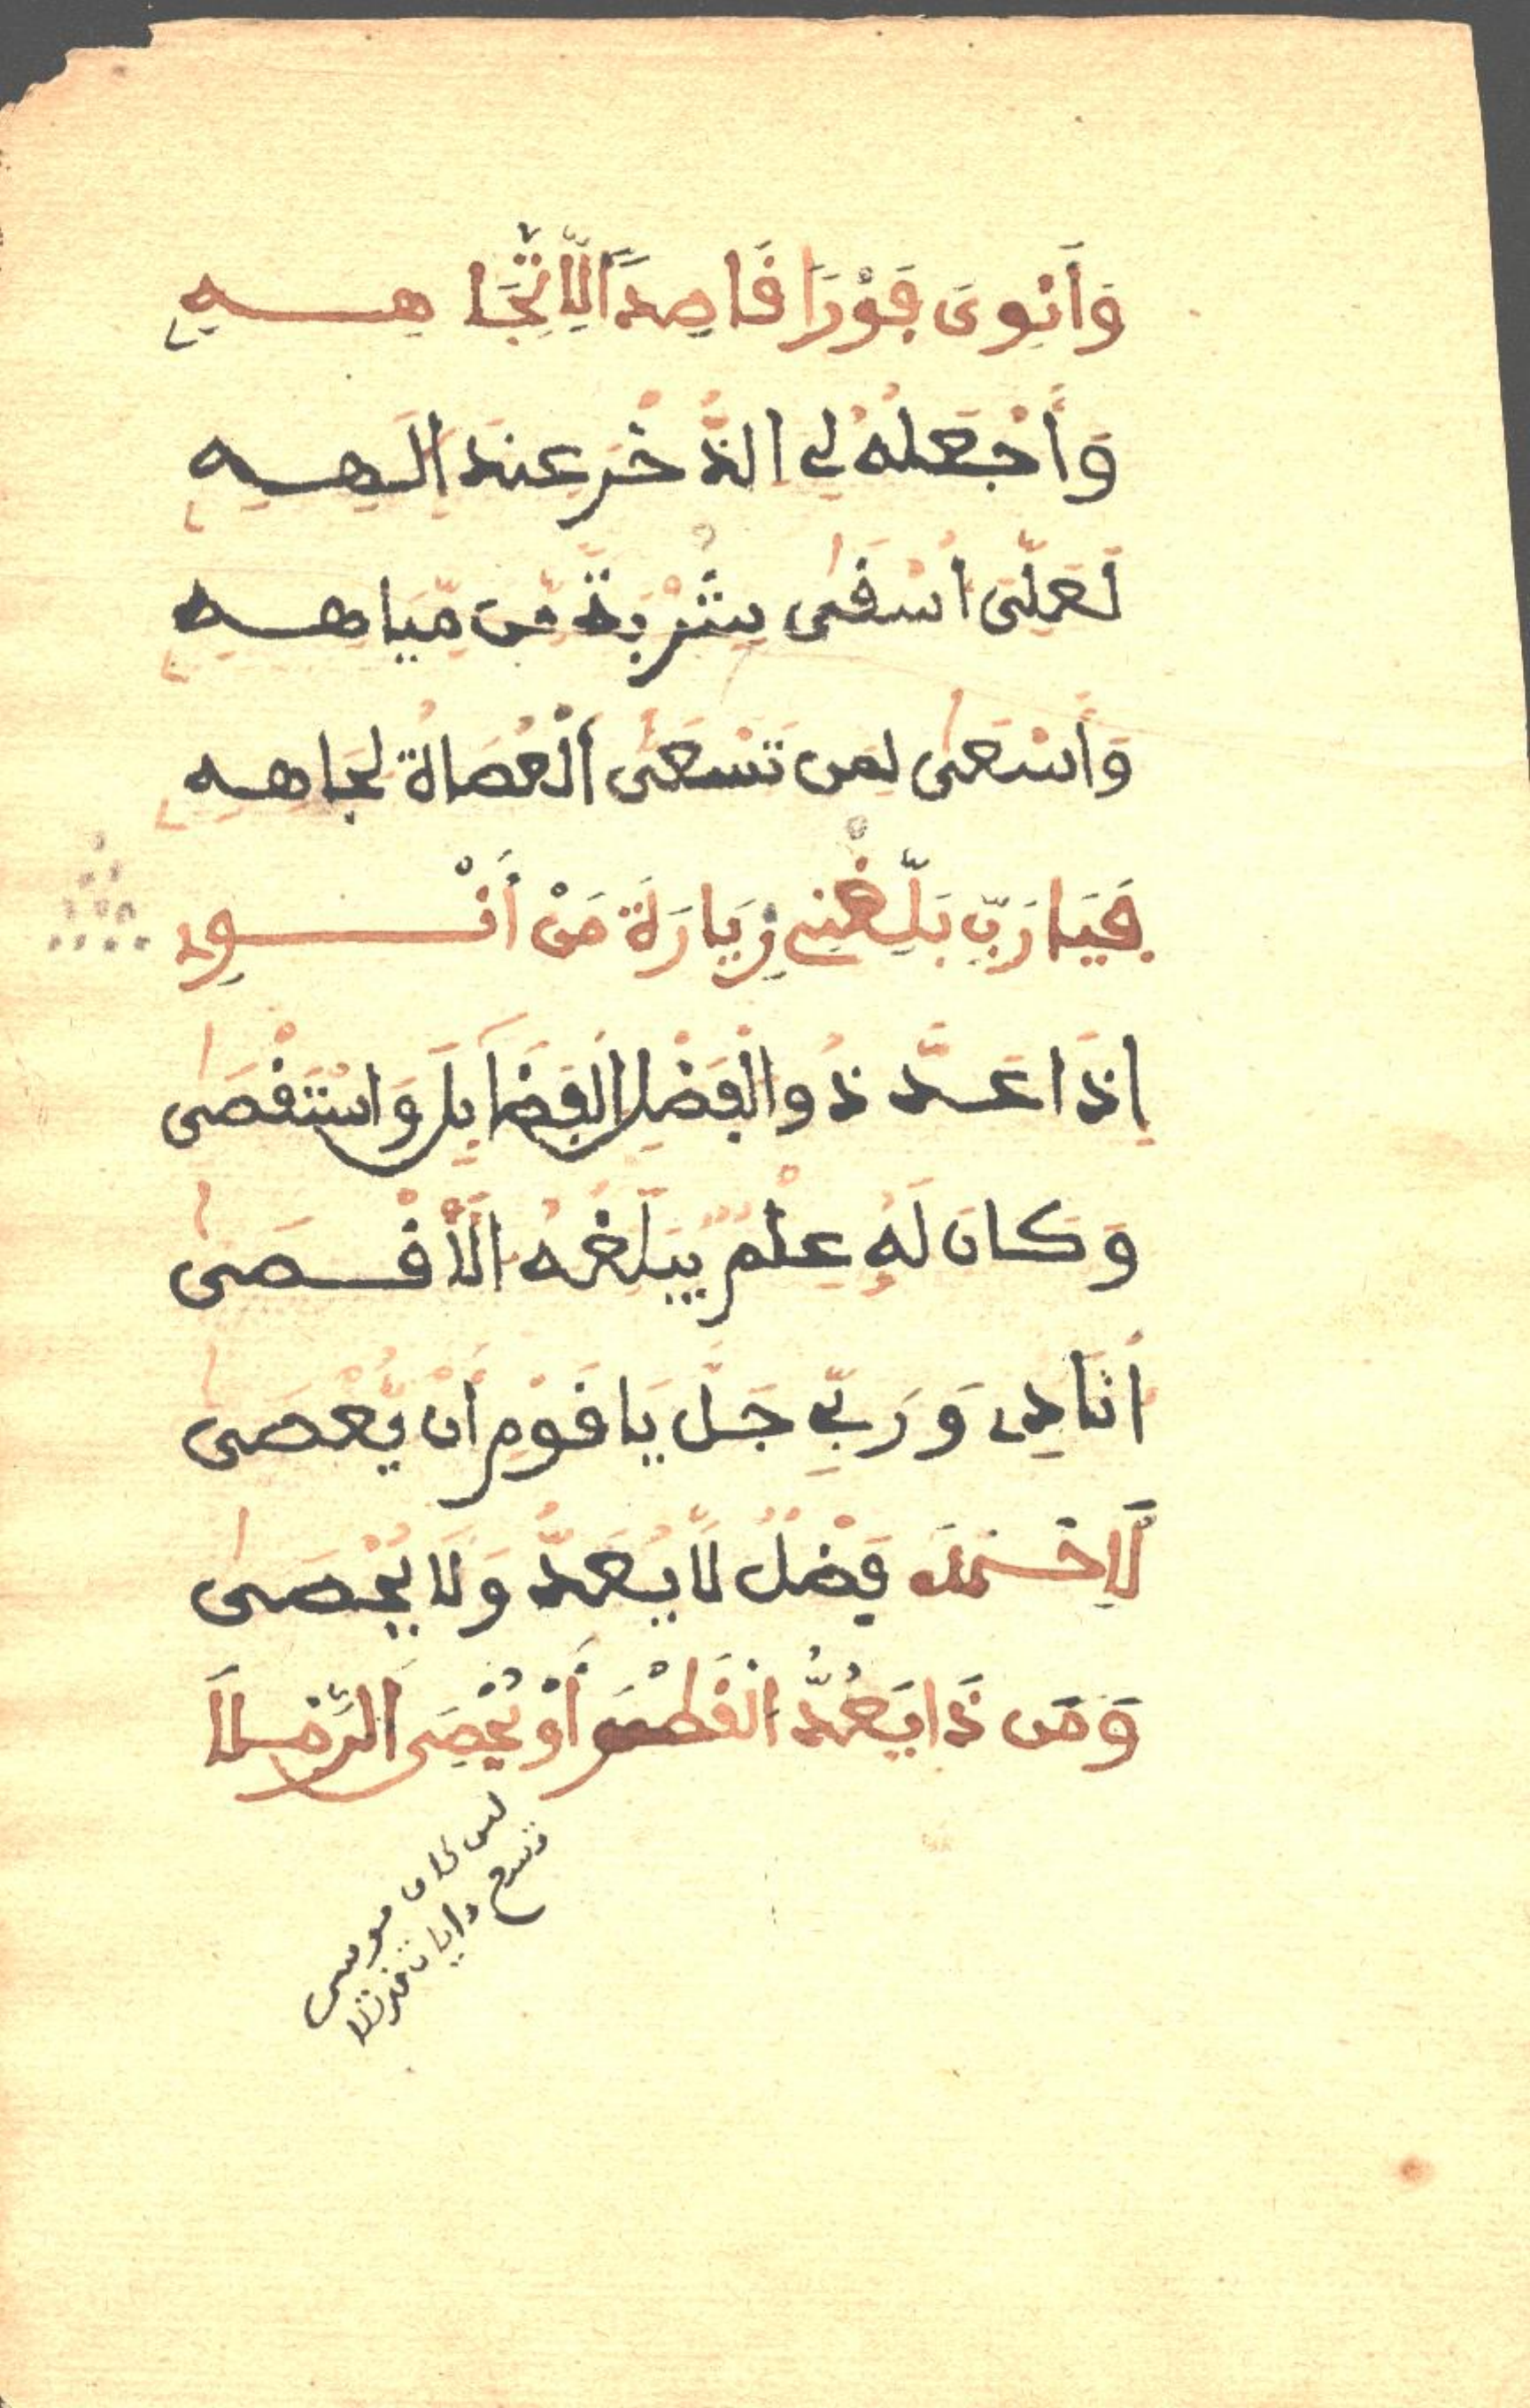 وَأَنْوِى فَوْرًا قَاصِدًا لِّاتِّجَاهِهِ
وَأَجْعَلُهُ لِى الذُّخْرَ عِندَ إِلَهِهِ
لَعَلِّىَ أُسْقَىٰ شُرْبَةً مِّن مِّيَاهِهِ
وَأَسْعَىٰ لِمَن تَسْعَى الْعُصَاةُ لِجَاهِهِ
فَيَا رَبِّ بَلِّغْنِى زِيَارَةَ مَنْ أَنْوِى
إِذَا عَدَّ ذُو الْفَضْلِ الْفَضَآئِلَ وَاسْتَقْصَىٰ
وَكَانَ لَهُ عِلْمٌ يُبَلِّغُهُ الْأَقْصَىٰ
أُنَادِى وَرَبِّى جَلَّ يَا قَوْمِ أَنْ يُّعْصَىٰ
لِأَحْمَدَ فَضْلٌ لَّا يُعَدُّ وَلَا يُحْصَىٰ
وَمَن ذَا يَعُدُّ الْقَطْرَ أَوْ يُحْصِى الرَّمْلَا
لىن كان موسى
تسع دايات